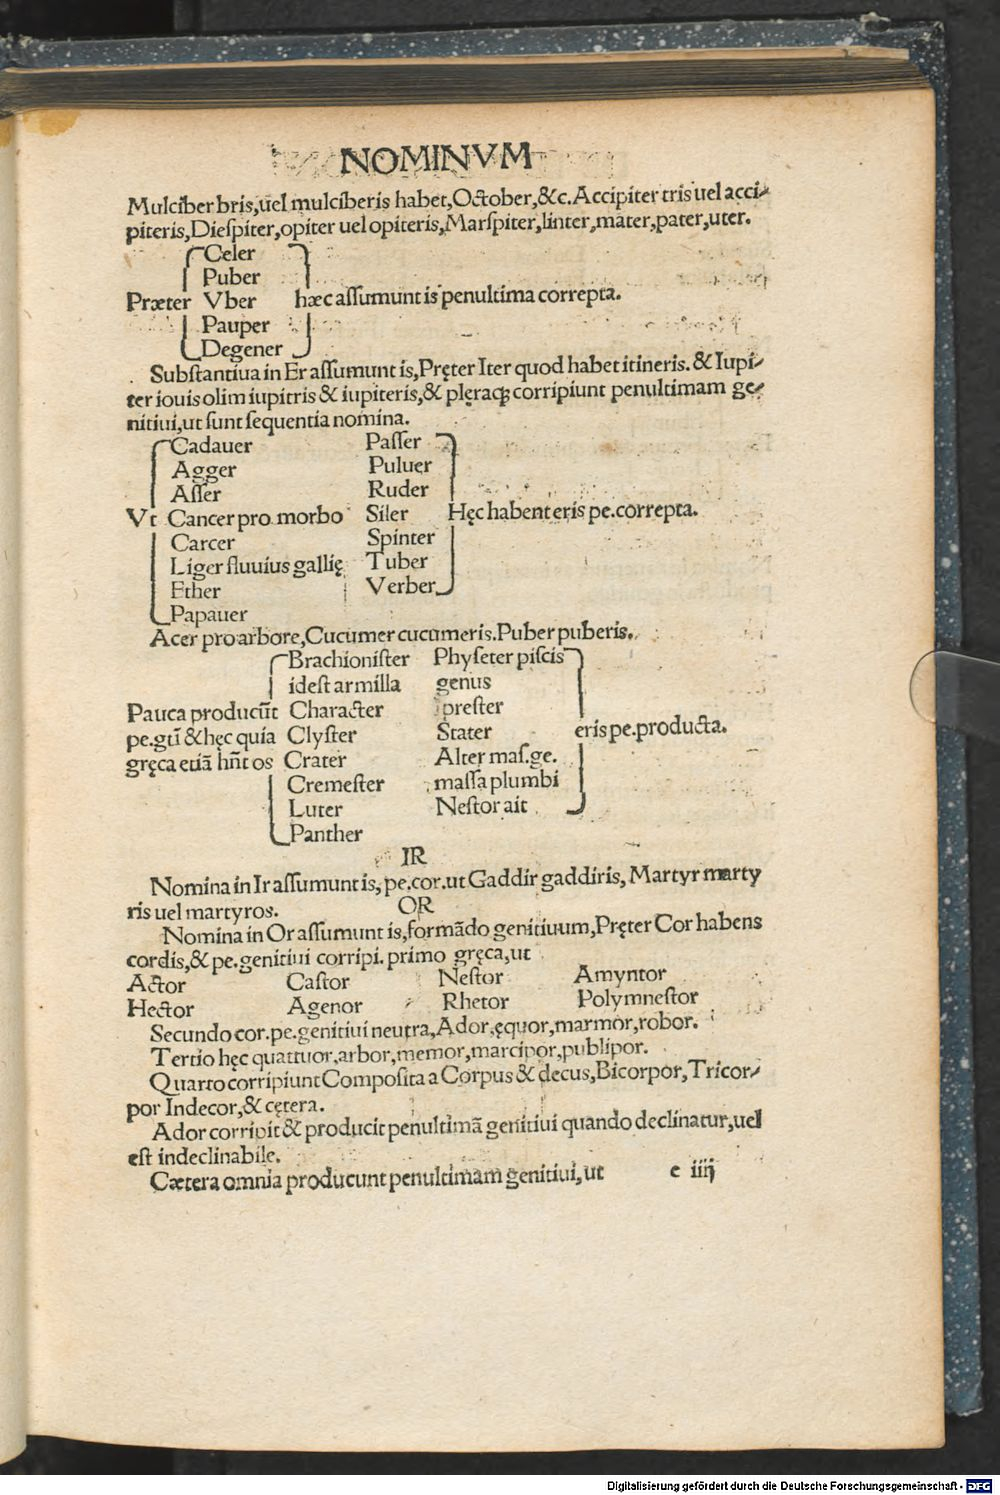 NOMINVM
Mulciber bris,uel mulciberis habet,October,&c.Accipiter tris uel acci-
piteris,Dieſpiter,opiter uel opiteris,Marſpiter,linter,mater,pater,uter.
Celer
Puber
Præter Vber hæc aſſumunt is penultima correpta.
Pauper
Degener
Subſtantiua in Er aſſumunt is,Pręter Iter quod habet itineris.& Iupi-
ter iouis olim iupitris & iupiteris,& plęraqꝫ corripiunt penultimam ge-
nitiui,ut ſunt ſequentia nomina.
Cadauer Paſſer
Agger Puluer
Aſſer Ruder
Vt Cancer pro morbo Siler Hęc habent eris pe.correpta.
Carcer Spinter
Liger fluuius gallię Tuber
Ether Verber
Papauer
Acer pro arbore,Cucumer cucumeris.Puber puberis.
Brachioniſter Phyſeter piſcis
ideſt armilla genus
Pauca producũt Character preſter
pe.gtĩ & hęc quia Clyſter Stater eris pe.producta.
gręca etiã hñt os Crater Alter maſ.ge.
Cremeſter maſſa plumbi
Luter Neſtor ait
Panther
IR
Nomina in Ir aſſumunt is, pe.cor.ut Gaddir gaddiris, Martyr marty
ris uel martyros.
OR
Nomina in Or aſſumunt is,formãdo genitiuum,Pręter Cor habens
cordis,& pe.genitiui corripi. primo gręca,ut
Actor Caſtor Neſtor Amyntor
Hector Agenor Rhetor Polymneſtor
Secundo cor.pe.genitiui neutra,Ador,ęquor,marmor,robor.
Tertio hęc quattuor,arbor,memor,marcipor,publipor.
Quarto corripiunt Compoſita a Corpus & decus,Bicorpor,Tricor-
por Indecor,& cętera.
Ador corripit & producit penultimã genitiui quando declinatur,uel
eſt indeclinabile.
Cætera omnia producunt penultimam genitiui,ut e iiij
Digitalisierung gefördert durch die Deutsche Forschungsgemeinschaft - DFG